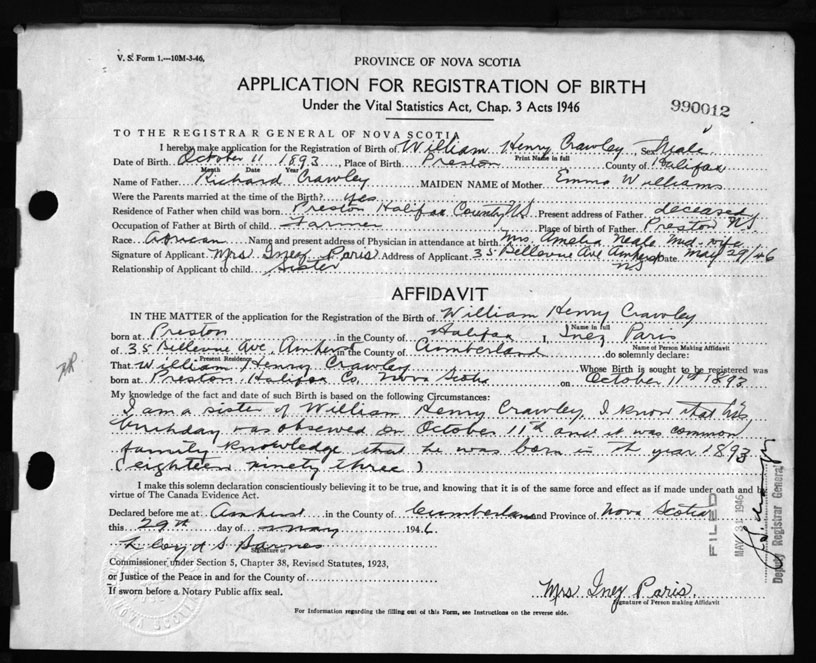 V. S. Form 1.—10M-3-46.
PROVINCE OF NOVA SCOTIA
APPLICATION FOR REGISTRATION OF BIRTH
Under the Vital Statistics Act, Chap. 3 Acts 1946
990012
TO THE REGISTRAR GENERAL OF NOVA SCOTIA
I hereby make application for the Registration of Birth of William Henry Crawley Sex Male
Print Name in full
Date of Birth October 11 1893 Place of Birth Preston County of Halifax
Month Date Year
Name of Father Richard Crawley MAIDEN NAME of Mother Emma Williams
Were the Parents married at the time of Birth? yes
Residence of Father when child was born Preston Halifax County NS Present address of Father deceased
Occupation of Father at Birth of child Farmer Place of birth of Father Preston NS
Race African Name and present address of Physician in attendance at birth Mrs. Amelia Neale Mid-wife
Signature of Applicant Mrs Inez Paris Address of Applicant 35 Bellevue Ave Amherst NS Date May 29/46
Relationship of Applicant to child Sister
AFFIDAVIT
IN THE MATTER of the application for the Registration of the Birth of William Henry Crawley
Name in full
born at Preston in the County of Halifax I, Inez Paris
Name of Person Making Affidavit
of 35 Bellevue Ave, Amherst in the County of Cumberland do solemnly declare:
Present Residence
That William Henry Crawley Whose Birth is sought to be registered was
born at Preston Halifax Co. Nova Scotia on October 11th 1893
My knowledge of the fact and date of such Birth is based on the following Circumstances:
I am a sister of William Henry Crawley I know that his
birthday was observed on October 11th and it was common
family knowledge that he was born in the year 1893
(eighteen ninety three)
I make this solemn declaration conscientiously believing it to be true, and knowing that it is of the same force and effect as if made under oath and by
virtue of The Canada Evidence Act.
Declared before me at Amherst in the County of Cumberland and Province of Nova Scotia
this 29th day of May 1946
Lloyd S Barnes
Signature of
Commissioner under Section 5, Chapter 38, Revised Statutes, 1923,
or Justice of the Peace in and for the County of
If sworn before a Notary Public affix seal.
Mrs Inez Paris.
Signature of Person making Affidavit
For Information regarding the filling out of this Form, see Instructions on the reverse side.
FILED
MAY 31 1946
Deputy Registrar General
NOVA SCOTIA